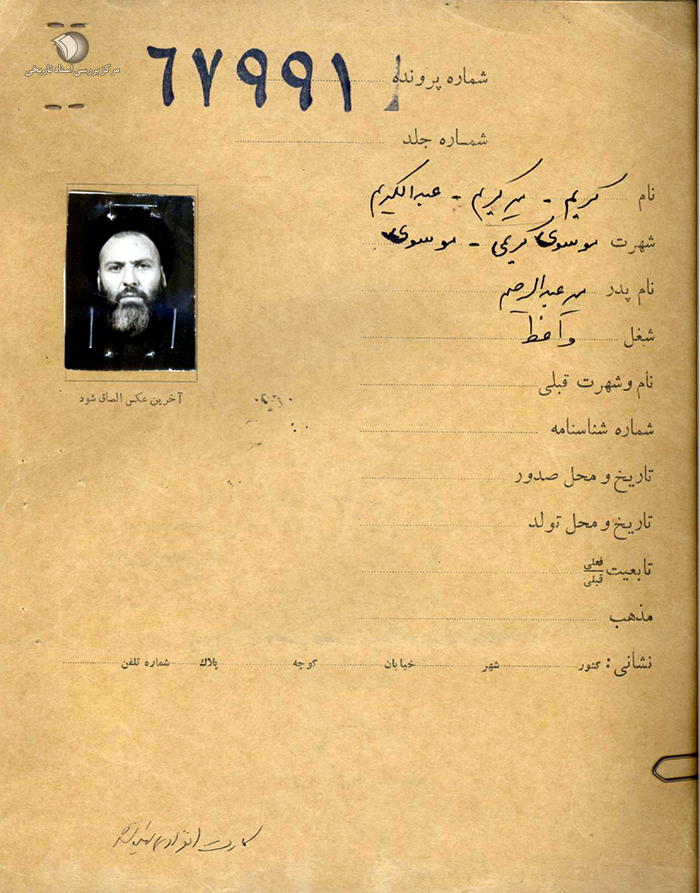 مرکز بررسی اسناد تاریخی
شماره پرونده ٦٧٩٩١
شماره جلد
نام کریم - میر کریم - عبدالکریم
شهرت موسوی کریمی - موسوی
نام پدر میر عبدالرحیم
شغل واعظ
نام و شهرت قبلی
شماره شناسنامه
تاریخ و محل صدور
تاریخ و محل تولد
تابعیت فعلی قبلی
مذهب
نشانی: کشور شهر خیابان کوچه پلاک شماره تلفن
آخرین عکس الصاق شود
کارت